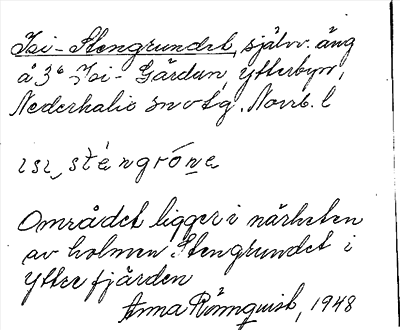 Isi-Stengrundet, självv. äng
å 3⁶ Isi-Gården, Ytterbyn,
Nederkalix snvtg. Norrb. l
ɪsɪ‿sténgrόne
Området ligger i närheten
av holmen Stengrundet i
Ytterfjärden
Anna Rönnquist, 1948